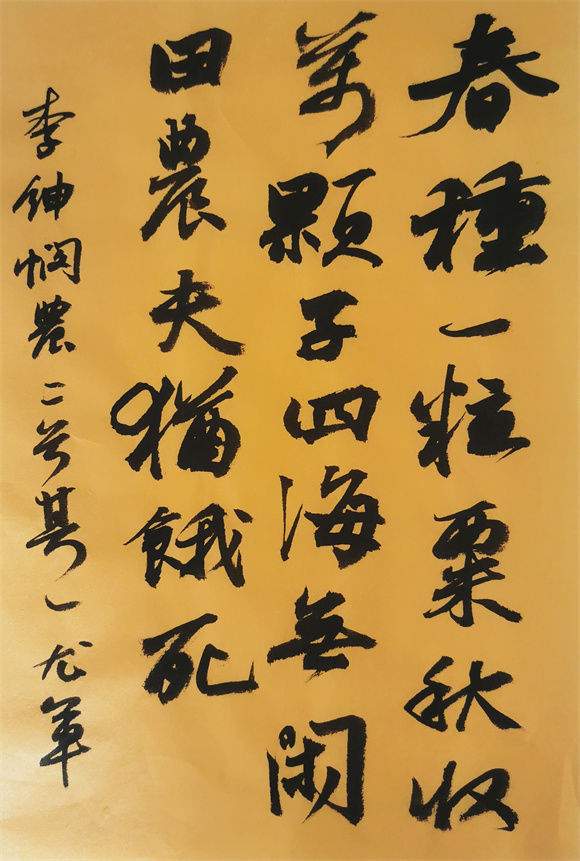 春種一粒粟秋收
萬顆子四海無閑
田農夫猶餓死
李紳憫農二首其一尤軍